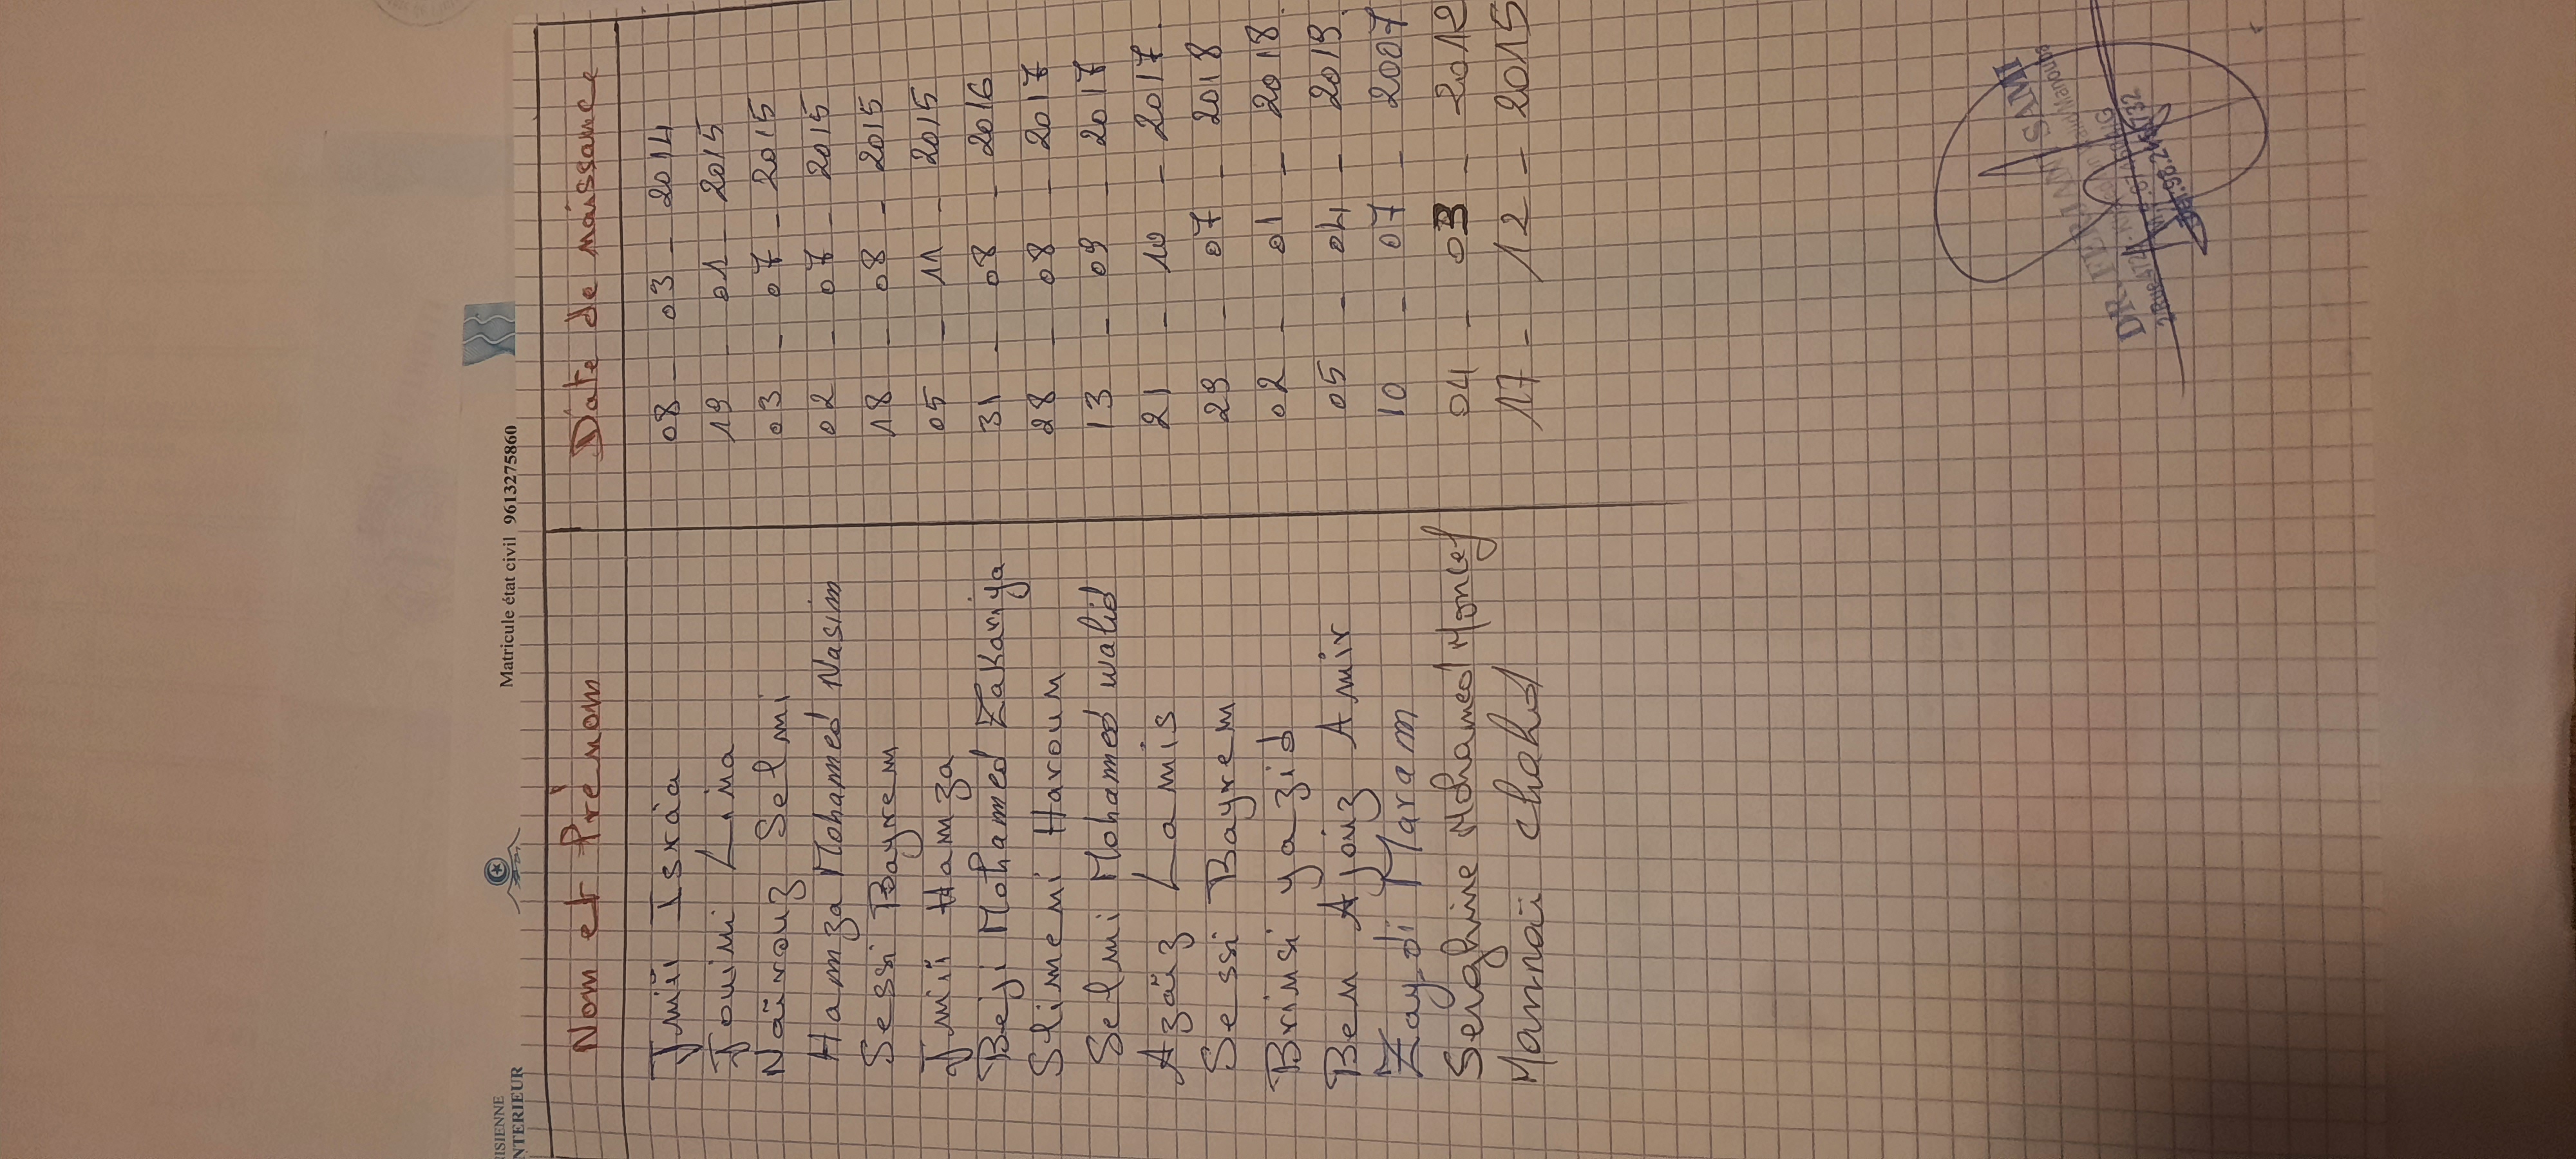 Matricule état civil 9613275860
NTERIEUR
Nom et Prénom Date de naissance
Jmii Israa 08 - 03 - 2014
Jouini Lina 19 - 01 - 2015
Nairouz Selmi 03 - 07 - 2015
Hamza Mohammed Nasim 02 - 07 - 2015
Sessi Bayrem 18 - 08 - 2015
Jmii Hamza 05 - 11 - 2015
Beji Mohammed Zakariya 31 - 08 - 2016
Slimeni Haroun 28 - 08 - 2017
Selmi Mohammed walid 13 - 09 - 2017
Azaiz Lamis 21 - 10 - 2017
Sessi Bayrem 29 - 07 - 2018
Brinsi yazid 02 - 01 - 2018
Ben Ajouiz Amir 05 - 04 - 2019
Zaydi Maram 10 - 07 - 2007
Seraghine Mohamed Moncef 04 - 03 - 2012
Mannai Chahd 17 - 12 - 2015
SAMI